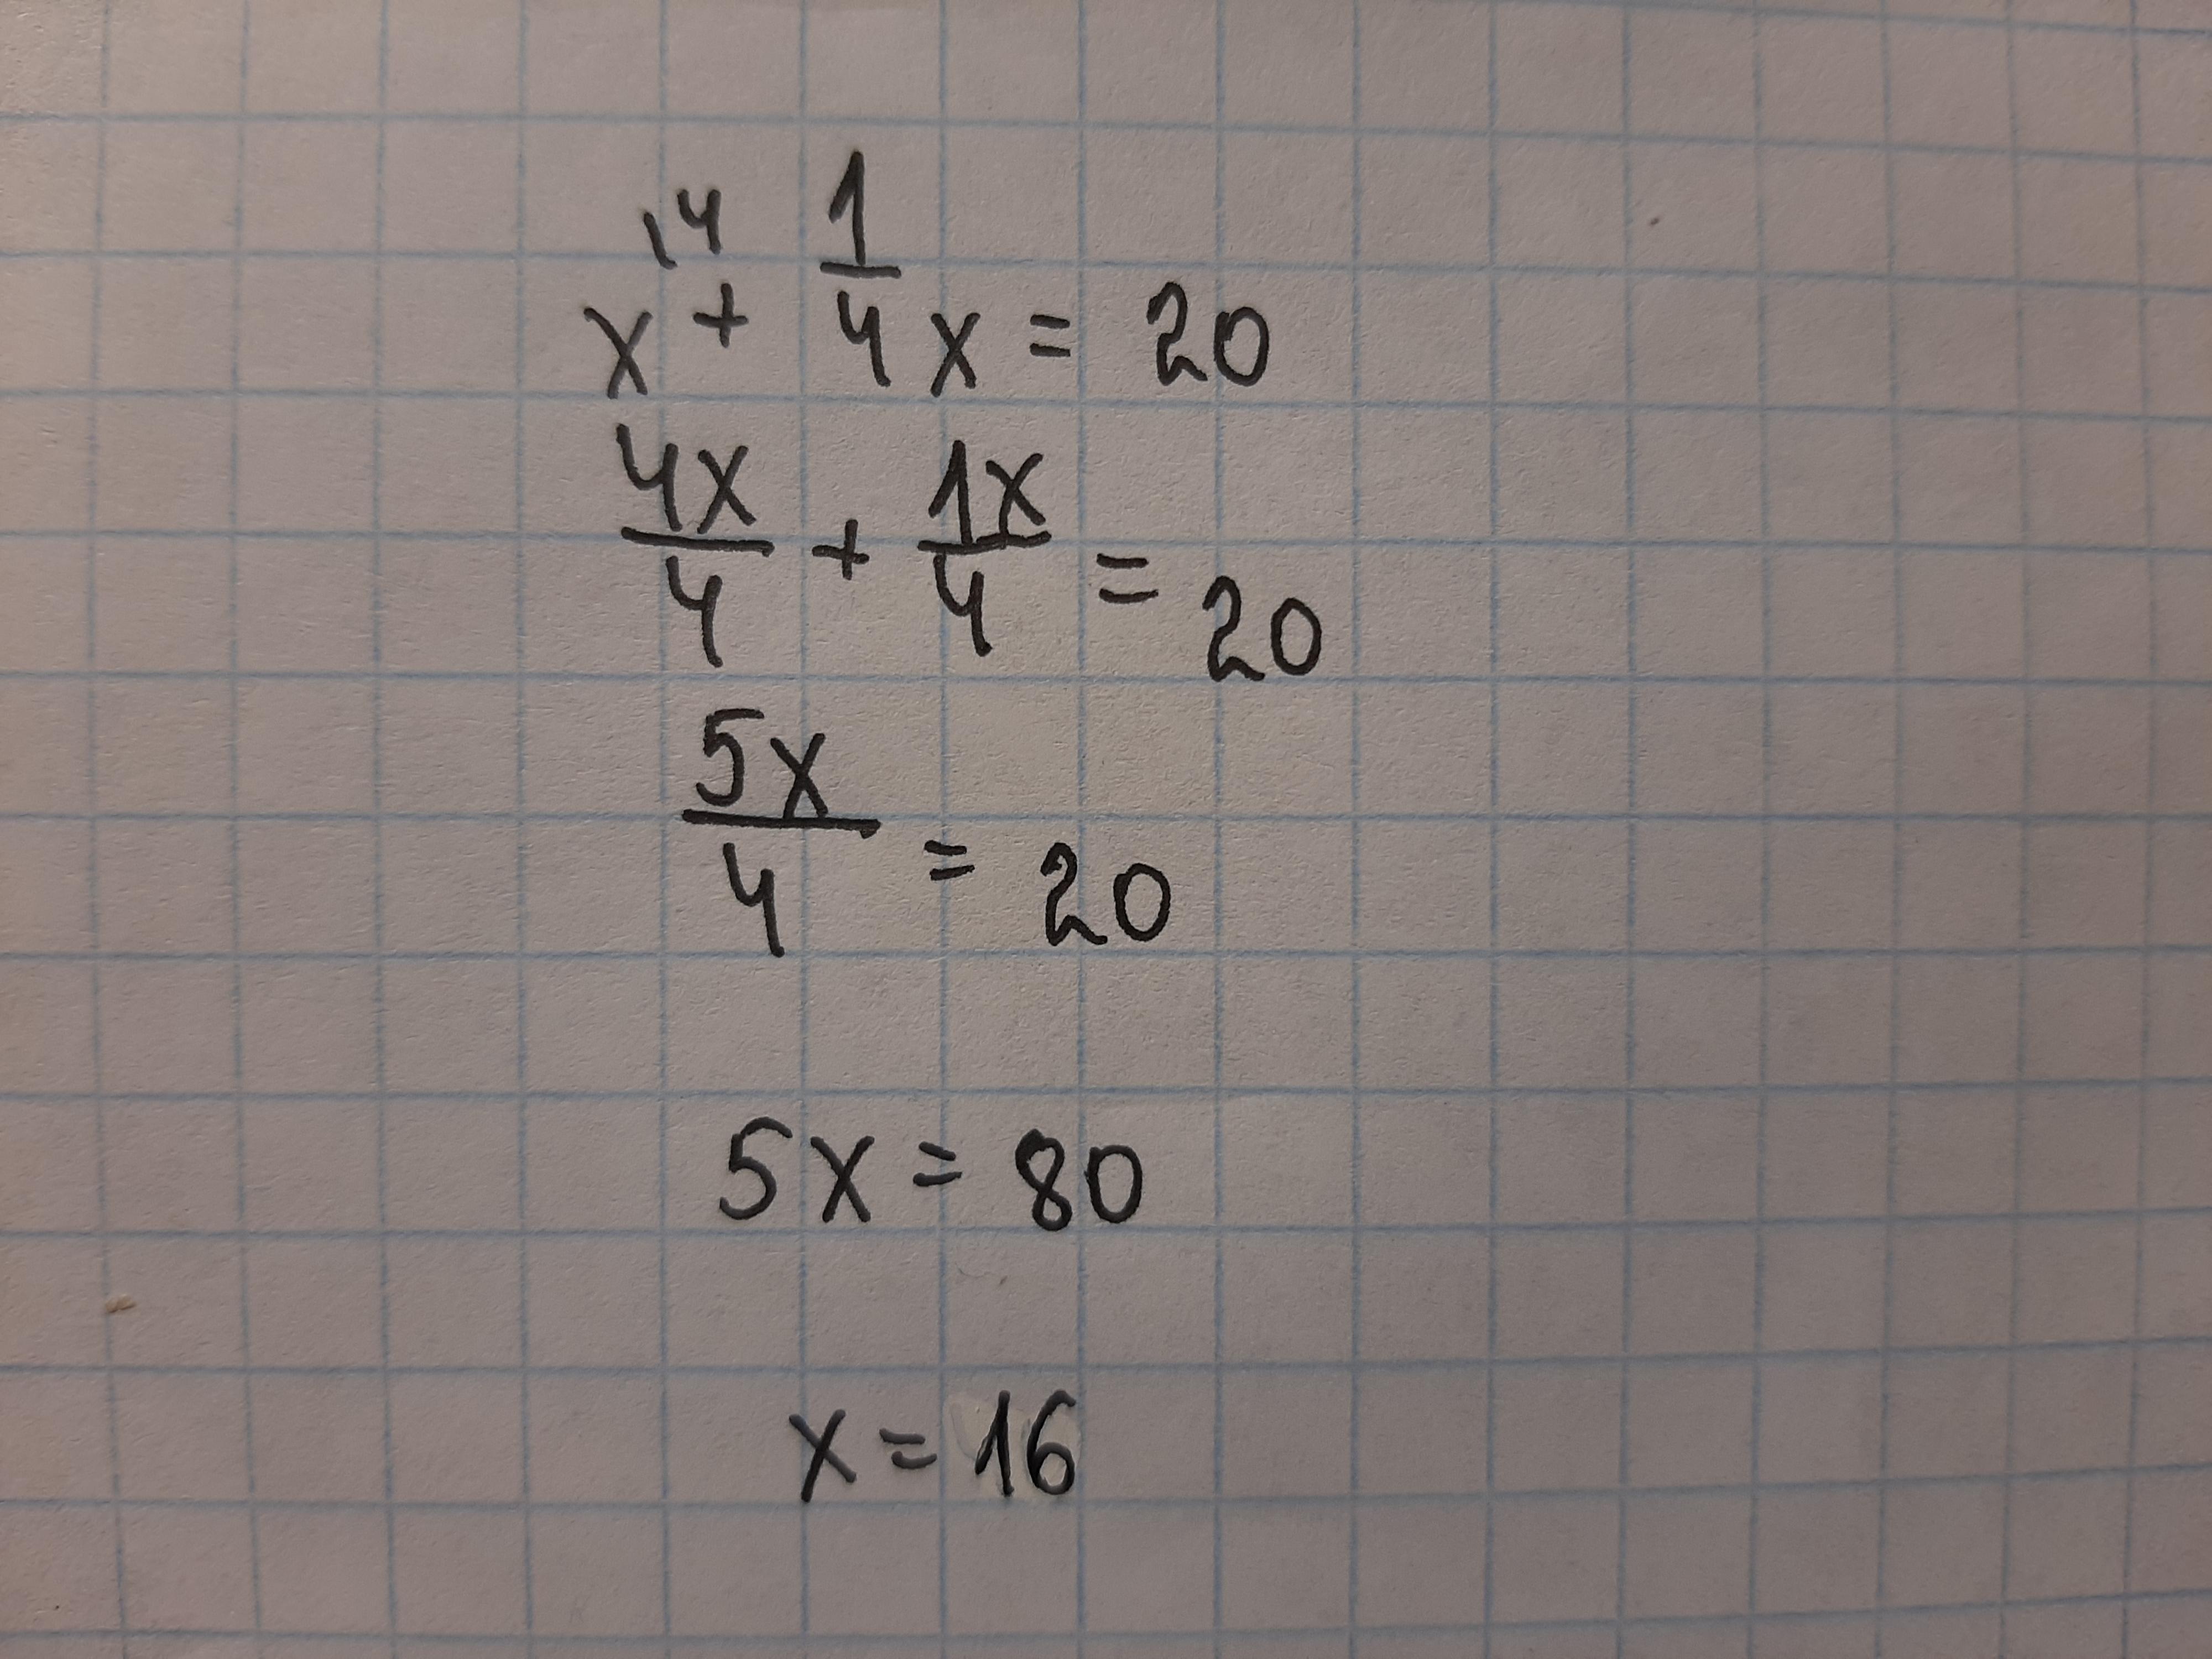 x\4 + 1/4 x = 20
4x/4 + 1x/4 = 20
5x/4 = 20
5x = 80
x = 16